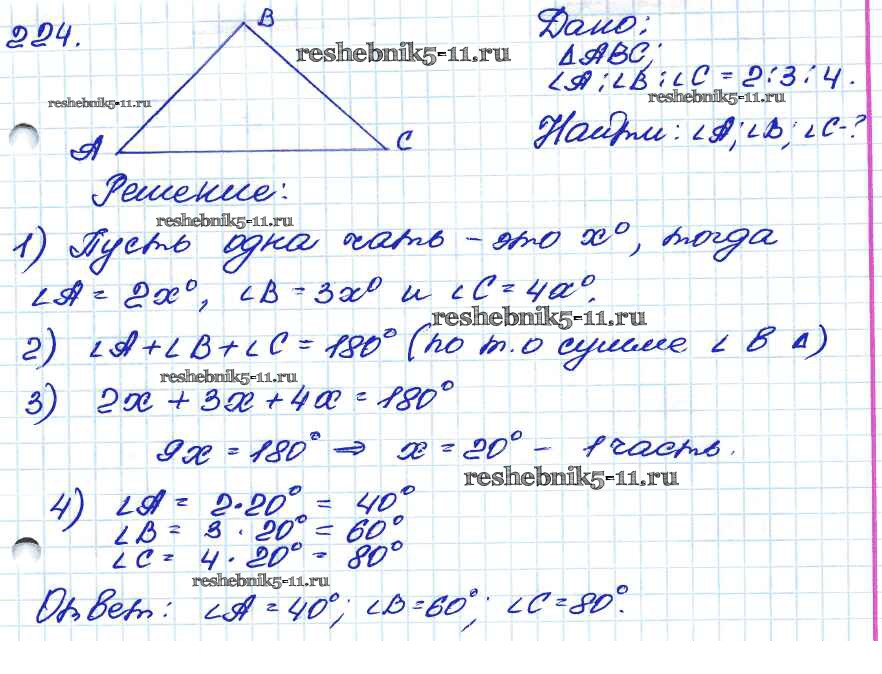 224.
B
A
C
reshebnik5-11.ru
reshebnik5-11.ru
Дано:
ΔABC;
∠A:∠B:∠C = 2:3:4.
reshebnik5-11.ru
Найти: ∠A; ∠B; ∠C-?
Решение:
reshebnik5-11.ru
1) Пусть одна чать – это x°, тогда
∠A = 2x°, ∠B = 3x° и ∠C = 4x°.
reshebnik5-11.ru
2) ∠A + ∠B + ∠C = 180° (по т. о сумме ∠ В Δ)
reshebnik5-11.ru
3) 2x + 3x + 4x = 180°
9x = 180° ⇒ x = 20° – 1 часть.
reshebnik5-11.ru
4) ∠A = 2·20° = 40°
∠B = 3 · 20° = 60°
∠C = 4 · 20° = 80°
reshebnik5-11.ru
Ответ: ∠A = 40°; ∠B = 60°; ∠C = 80°.